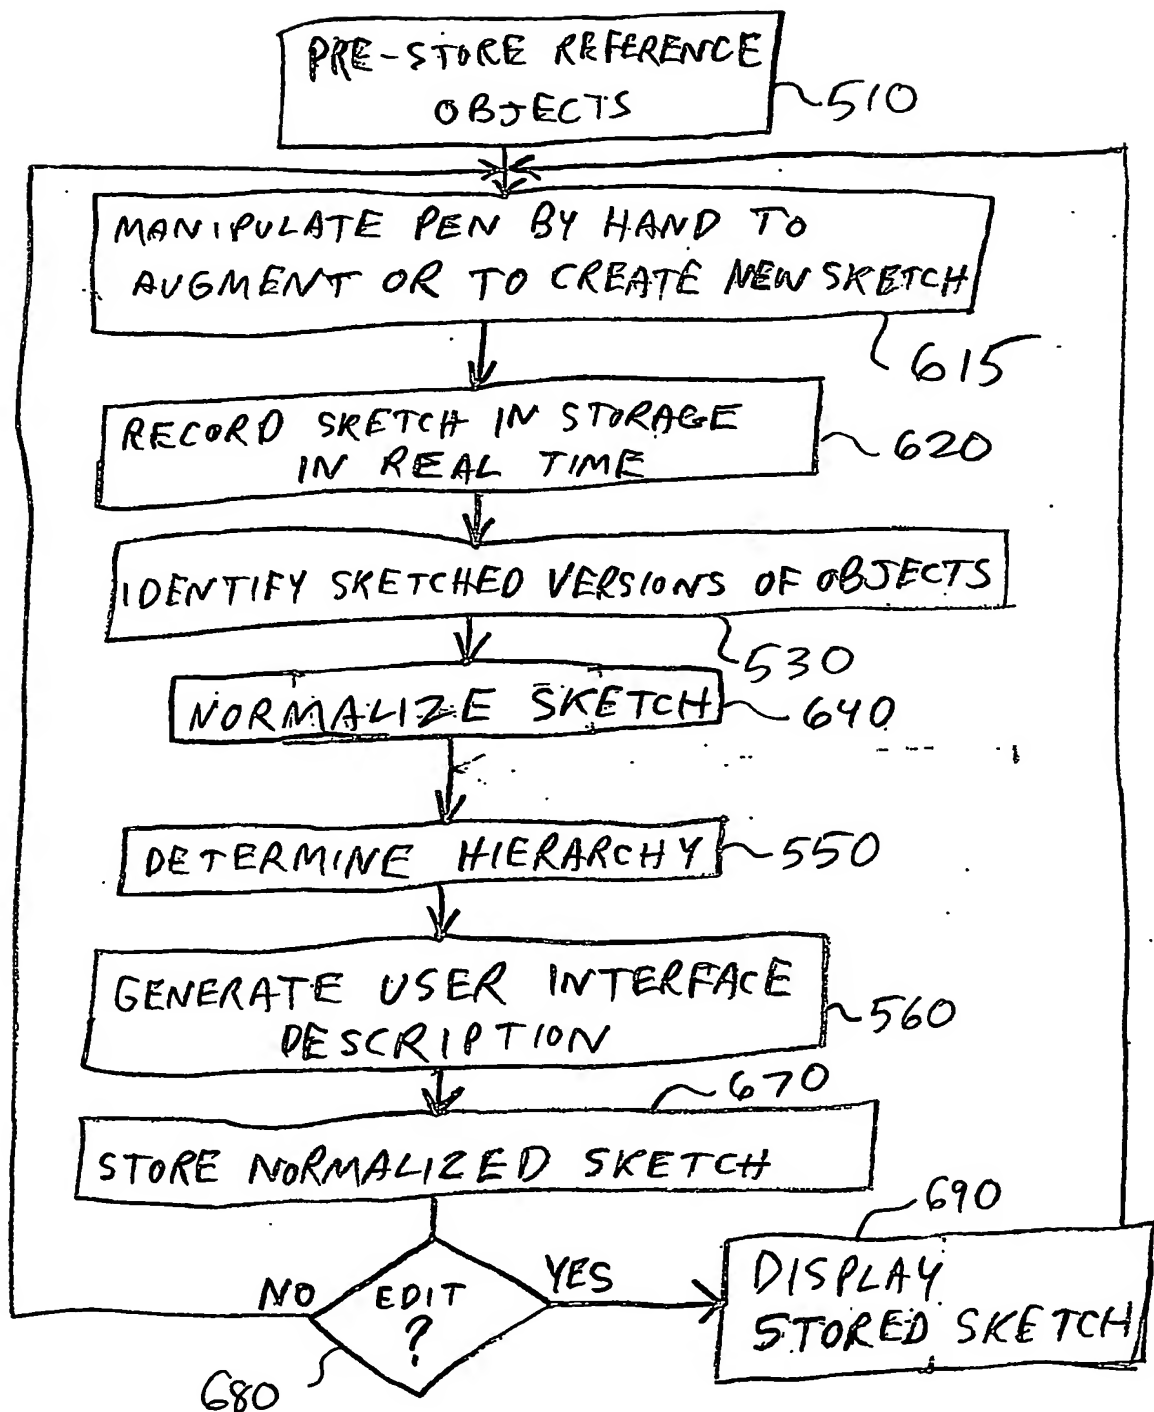 PRE-STORE REFERENCE
OBJECTS
510
MANIPULATE PEN BY HAND TO
AUGMENT OR TO CREATE NEW SKETCH
615
RECORD SKETCH IN STORAGE
IN REAL TIME
620
IDENTIFY SKETCHED VERSIONS OF OBJECTS
530
NORMALIZE SKETCH
640
DETERMINE HIERARCHY
550
GENERATE USER INTERFACE
DESCRIPTION
560
670
STORE NORMALIZED SKETCH
690
NO
EDIT
?
YES
DISPLAY
STORED SKETCH
680